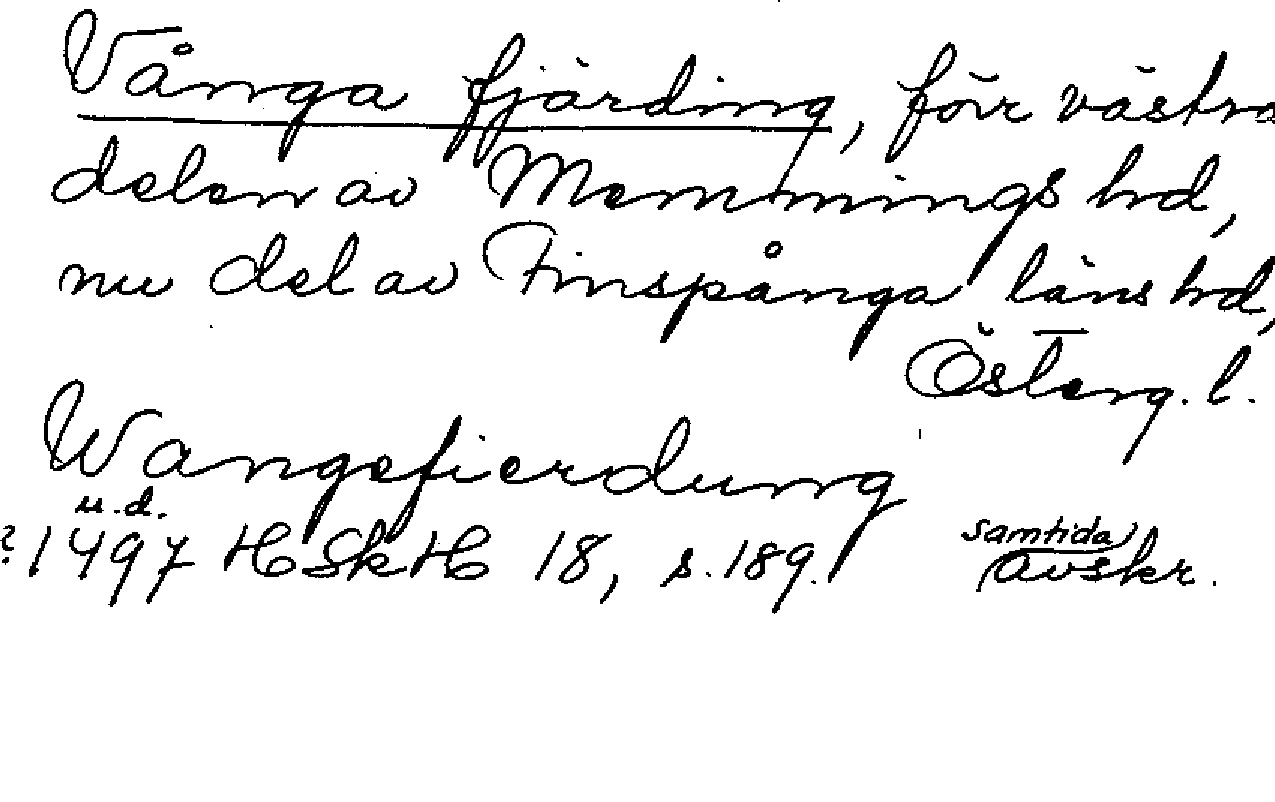 Vånga fjärding, förr västra
delen av Memmings hrd,
nu del av Finspånga läns hrd,
Österg. l.
Wangefierdung
u.d.
?1497 HSkH 18, s. 189. samtida
avskr.